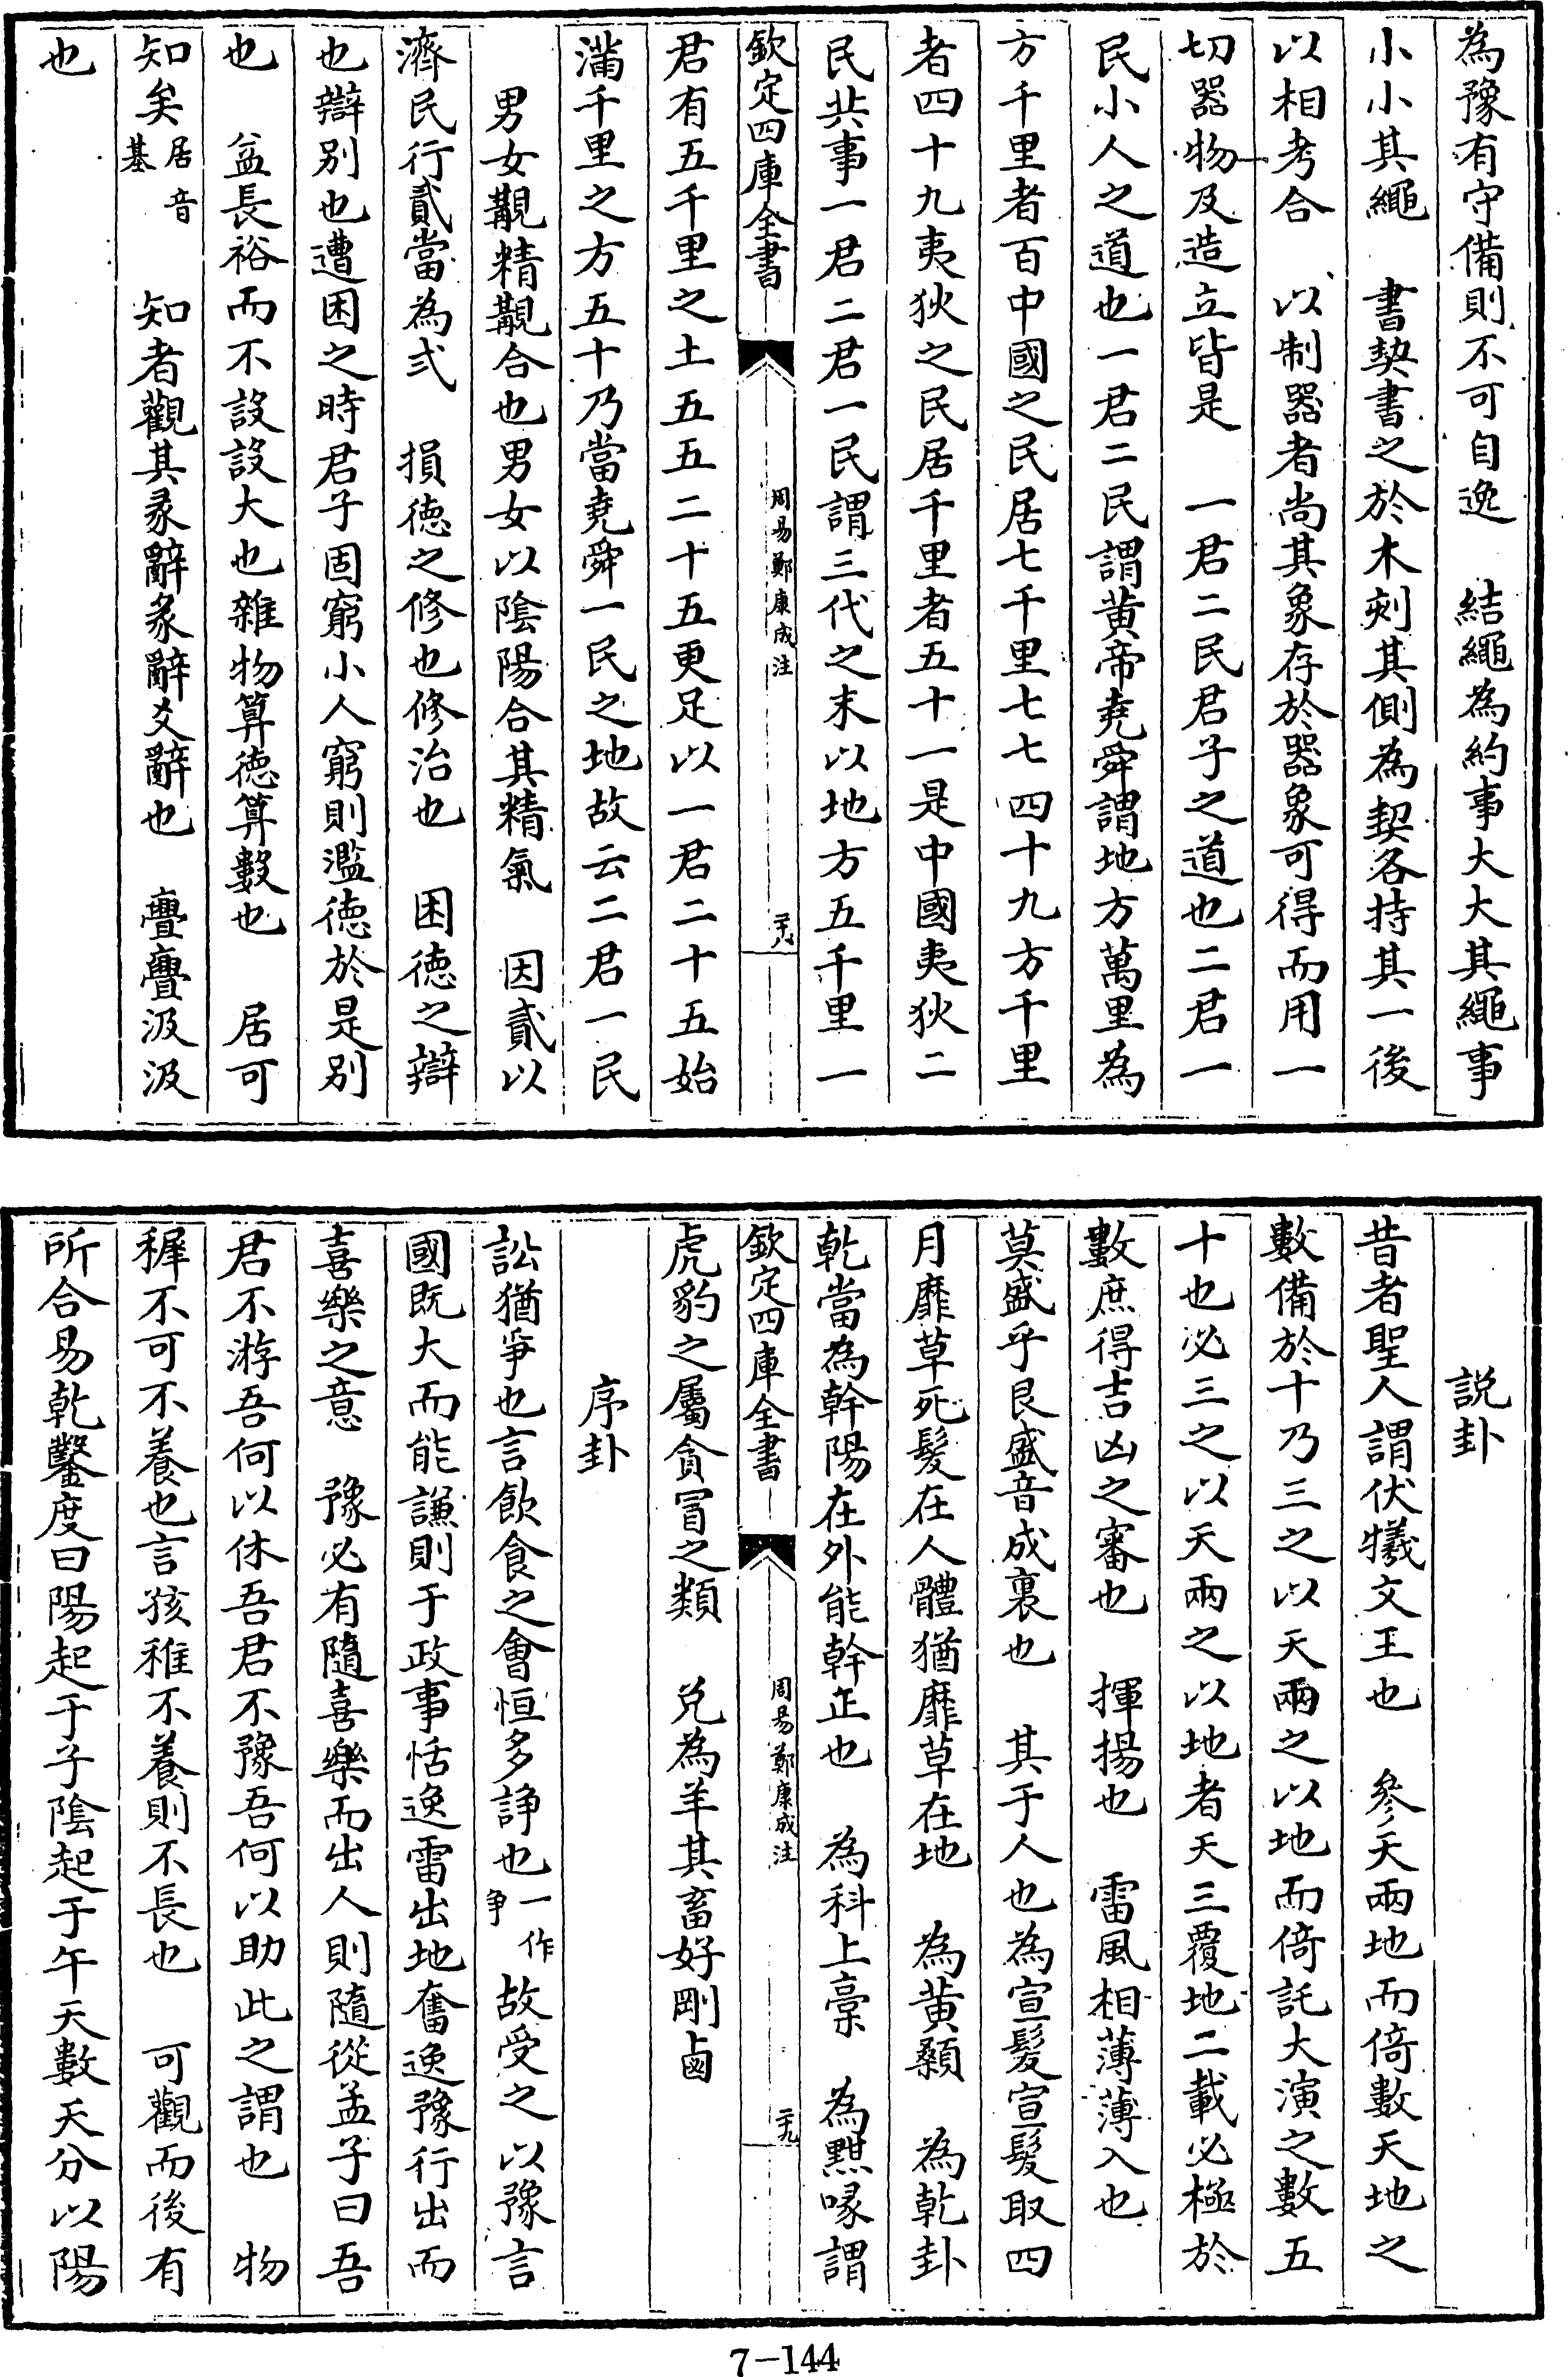 為豫有守備則不可自逸　結繩為約事大大其繩事
小小其繩　書契書之於木刻其側為契各持其一後
以相考合　以制器者尚其象存於器象可得而用一
切器物及造立皆是　一君二民君子之道也二君一
民小人之道也一君二民謂黄帝堯舜謂地方萬里為
方千里者百中國之民居七千里七七四十九方千里
者四十九夷狄之民居千里者五十一是中國夷狄二
民共事一君二君一民謂三代之末以地方五千里一
欽定四庫全書　周易鄭康成注　二十八
君有五千里之土五五二十五更足以一君二十五始
滿千里之方五十乃當堯舜一民之地故云二君一民
男女覯精覯合也男女以陰陽合其精氣　因貳以
濟民行貳當為弍　損德之修也修治也　困德之辯
也辯別也遭困之時君子固窮小人窮則濫德於是別
也　益長裕而不設設大也雜物算德算數也　居可
知矣居音基　知者觀其彖辭彖辭爻辭也　亹亹汲汲
也
説卦
昔者聖人謂伏犧文王也　參天兩地而倚數天地之
數備於十乃三之以天兩之以地而倚託大演之數五
十也必三之以天兩之以地者天三覆地二載必極於
數庶得吉凶之審也　揮揚也　雷風相薄薄入也
莫盛乎艮盛音成裹也　其于人也為宣髮宣髮取四
月靡草死髮在人體猶靡草在地　為黄顙　為乾卦
乾當為幹陽在外能幹正也　為科上槀　為黔喙謂
欽定四庫全書　周易鄭康成注　二十九
虎豹之屬貪冒之類　兑為羊其畜好剛鹵
序卦
訟猶爭也言飲食之㑹恒多諍也一作争故受之以豫言
國既大而能謙則于政事恬逸雷出地奮逸豫行出而
喜樂之意　豫必有隨喜樂而出人則隨從孟子曰吾
君不游吾何以休吾君不豫吾何以助此之謂也　物
穉不可不養也言孩稚不養則不長也　可觀而後有
所合易乾鑿度曰陽起于子陰起于午天數天分以陽
7-144